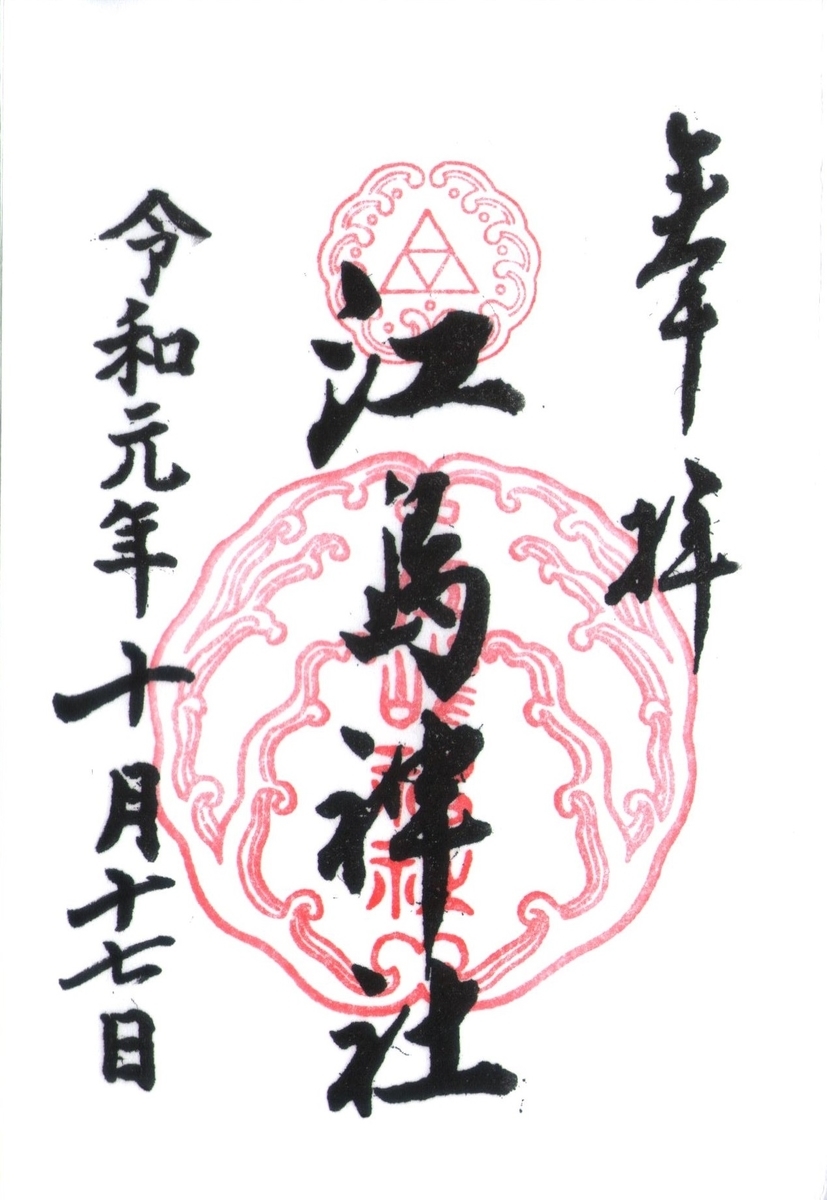 奉拝
江島神社
令和元年十月十七日